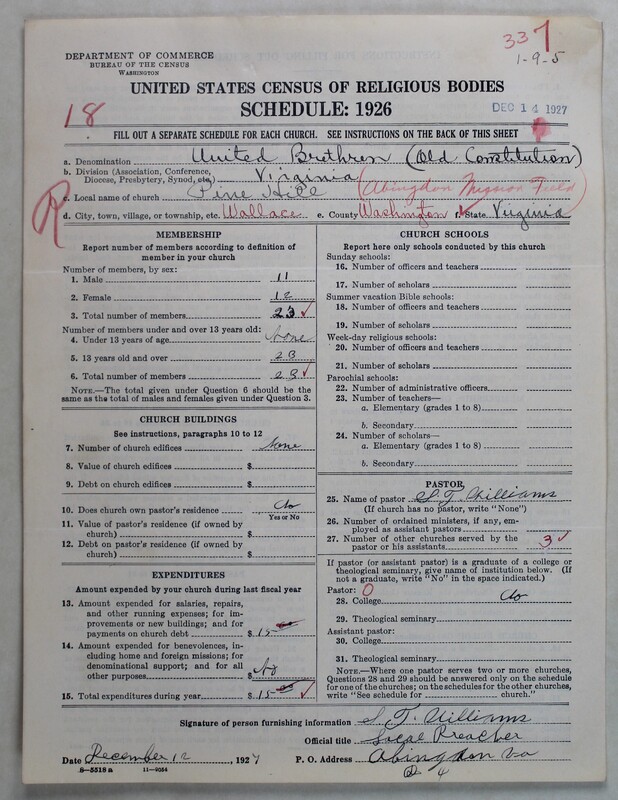 337
1-9-5
DEPARTMENT OF COMMERCE
BUREAU OF THE CENSUS
WASHINGTON
UNITED STATES CENSUS OF RELIGIOUS BODIES
SCHEDULE: 1926
18
DEC 14 1927
FILL OUT A SEPARATE SCHEDULE FOR EACH CHURCH. SEE INSTRUCTIONS ON THE BACK OF THIS SHEET
a. Denomination United Brethren (Old Constitution)
b. Division (Association, Conference, Diocese, Presbytery, Synod, etc.) Virginia
c. Local name of church Pine Hill (Abingdon Mission Field)
R
d. City, town, village, or township, etc. Wallace e. County Washington f. State Virginia
MEMBERSHIP
Report number of members according to definition of member in your church
Number of members, by sex:
1. Male 11
2. Female 12
3. Total number of members 23 ✓
Number of members under and over 13 years old:
4. Under 13 years of age None
5. 13 years old and over 23
6. Total number of members 23 ✓
NOTE.—The total given under Question 6 should be the same as the total of males and females given under Question 3.
CHURCH BUILDINGS
See instructions, paragraphs 10 to 12
7. Number of church edifices None
8. Value of church edifices $
9. Debt on church edifices $
10. Does church own pastor's residence No
Yes or No
11. Value of pastor's residence (if owned by church) $
12. Debt on pastor's residence (if owned by church) $
EXPENDITURES
Amount expended by church during last fiscal year
13. Amount expended for salaries, repairs, and other running expenses; for improvements or new buildings; and for payments on church debt $ 15
14. Amount expended for benevolences, including home and foreign missions; for denominational support; and for all other purposes $ No
15. Total expenditures during year $ 15 ✓
CHURCH SCHOOLS
Report here only schools conducted by this church
Sunday schools:
16. Number of officers and teachers
17. Number of scholars
Summer vacation Bible schools:
18. Number of officers and teachers
19. Number of scholars
Week-day religious schools:
20. Number of officers and teachers
21. Number of scholars
Parochial schools:
22. Number of administrative officers
23. Number of teachers—
a. Elementary (grades 1 to 8)
b. Secondary
24. Number of scholars—
a. Elementary (grades 1 to 8)
b. Secondary
PASTOR
25. Name of pastor S. T. Williams
(If church has no pastor, write "None")
26. Number of ordained ministers, if any, employed as assistant pastors
27. Number of other churches served by the pastor or his assistants 3 ✓
If pastor (or assistant pastor) is a graduate of a college or theological seminary, give name of institution below. (If not a graduate, write "No" in the space indicated.)
Pastor: 0
28. College No
29. Theological seminary
Assistant pastor:
30. College
31. Theological seminary
NOTE.—Where one pastor serves two or more churches, Questions 28 and 29 should be answered only on the schedule for one of the churches; on the schedules for the other churches, write "See schedule for church."
Signature of person furnishing information S. T. Williams
Official title Local Preacher
Date December 12, 1927 P. O. Address Abingdon Va
8-5518 a 11-9054
4